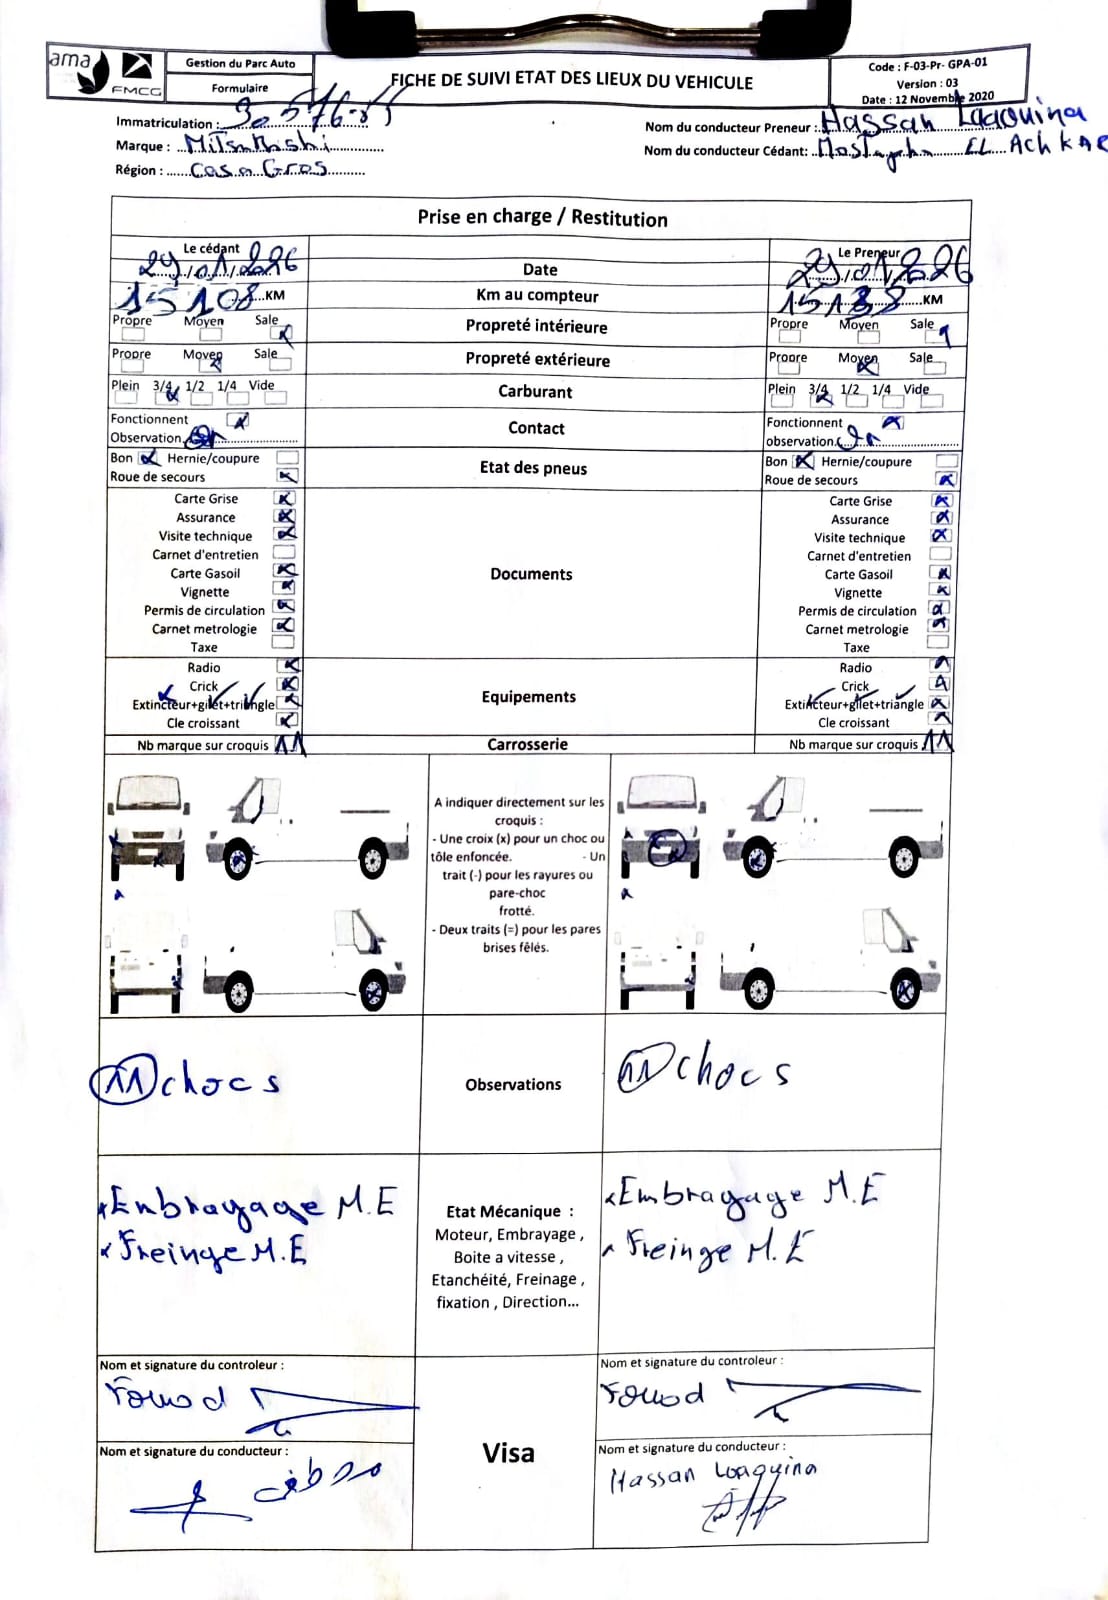 ama
FMCG
Gestion du Parc Auto
Formulaire
FICHE DE SUIVI ETAT DES LIEUX DU VEHICULE
Code : F-03-Pr- GPA-01
Version : 03
Date : 12 Novembre 2020
Immatriculation :
Nom du conducteur Preneur : Hassan Laaouina
Marque : Mitsubishi
Nom du conducteur Cédant: Mostapha EL AchKAR
Région : Casa Gros
Prise en charge / Restitution
Le cédant
Le Preneur
29/01/2026 Date 29/01/2026
15108 KM Km au compteur KM
Propre Moyen Sale Propreté intérieure Propre Moyen Sale
Propre Moyen Sale Propreté extérieure Propre Moyen Sale
Plein 3/4 1/2 1/4 Vide Carburant Plein 3/4 1/2 1/4 Vide
Fonctionnent Contact Fonctionnent
Observation observation
Bon Hernie/coupure Etat des pneus Bon Hernie/coupure
Roue de secours Roue de secours
Carte Grise Carte Grise
Assurance Assurance
Visite technique Visite technique
Carnet d'entretien Carnet d'entretien
Carte Gasoil Documents Carte Gasoil
Vignette Vignette
Permis de circulation Permis de circulation
Carnet metrologie Carnet metrologie
Taxe Taxe
Radio Radio
Crick Crick
Extincteur+gilet+triangle Equipements Extincteur+gilet+triangle
Cle croissant Cle croissant
Nb marque sur croquis 11 Carrosserie Nb marque sur croquis 11
A indiquer directement sur les
croquis :
- Une croix (x) pour un choc ou
tôle enfoncée. - Un
trait (-) pour les rayures ou
pare-choc
frotté.
- Deux traits (=) pour les pares
brises fêlés.
11 chocs Observations 11 chocs
Embrayage M.E
Freinge M.E
Etat Mécanique :
Moteur, Embrayage ,
Boite a vitesse ,
Etanchéité, Freinage ,
fixation , Direction...
Embrayage M.E
Freinge M.E
Nom et signature du controleur :
Fouad
Nom et signature du controleur :
Fouad
Visa
Nom et signature du conducteur :
Nom et signature du conducteur :
Hassan Laaquina